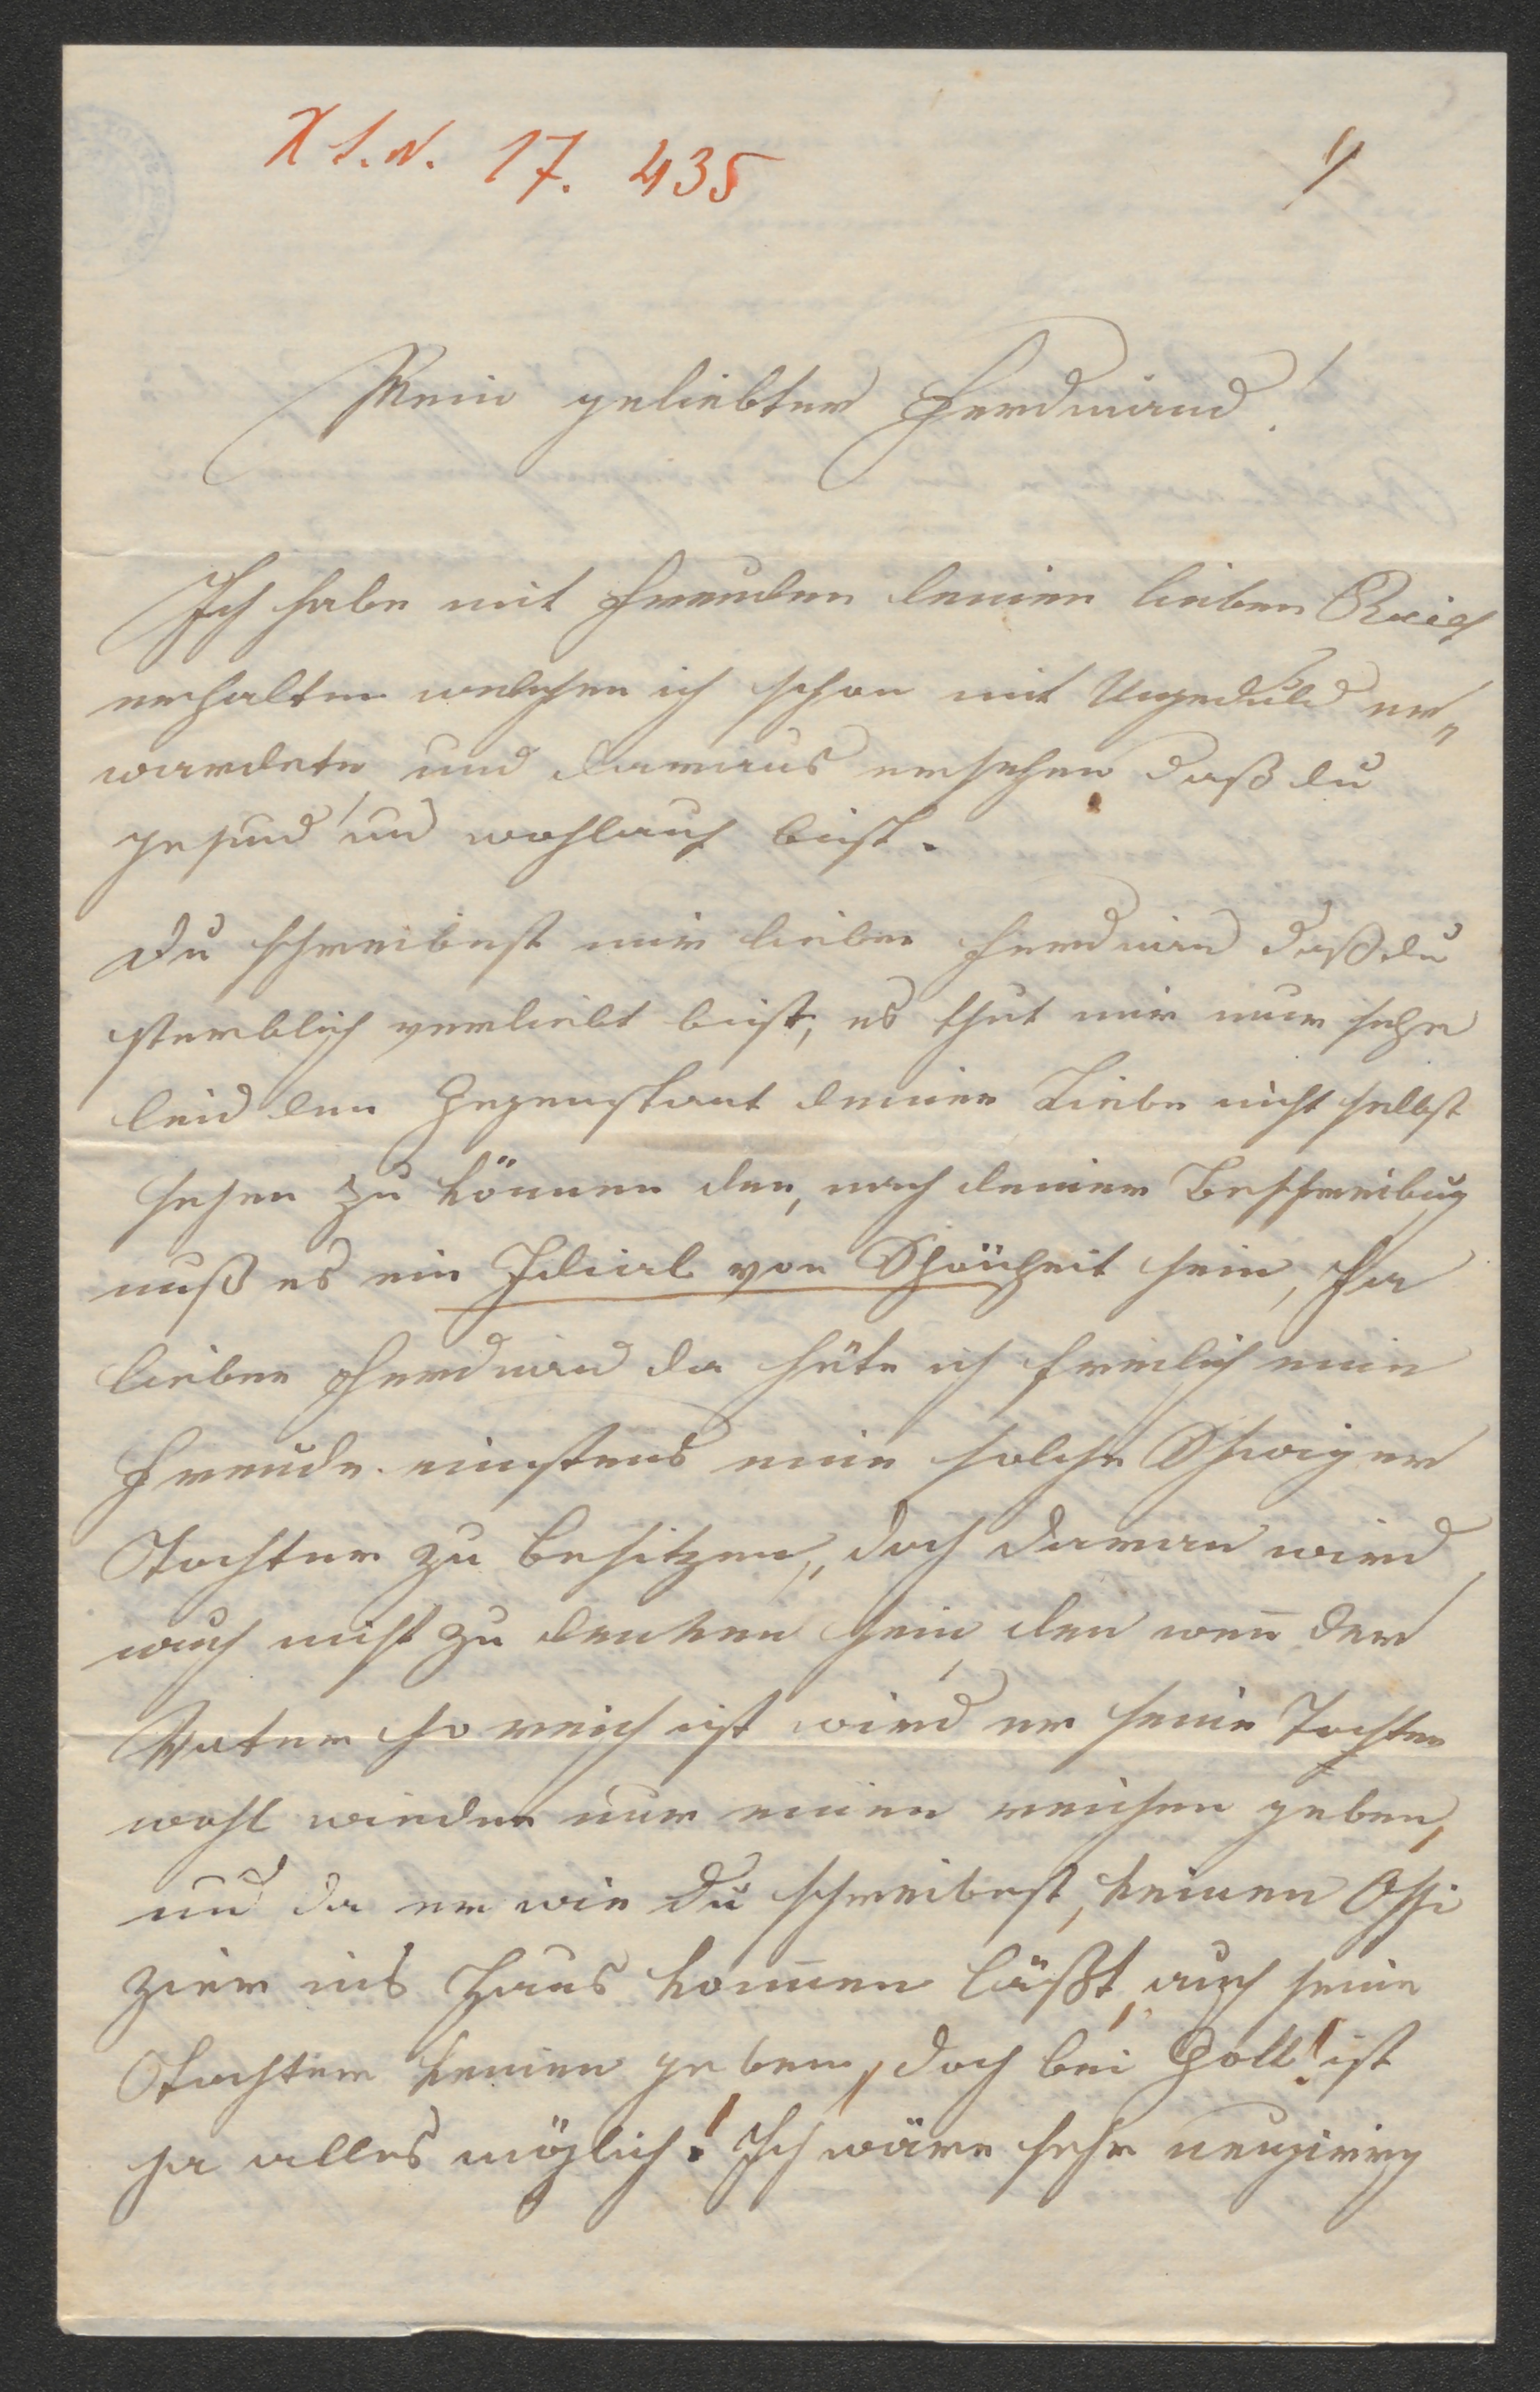 X I.N. 17. 435
1/
Mein geliebter Ferdinand!
Ich habe mit Freuden deinen lieben Brief
erhalten welchen ich schon mit Ungeduld er„
wardete und daraus ersehen daß du
gesund und wohlauf bist.
Du schreibest mir lieber Ferdinand daß du
sterblich verliebt bist, es thut mir nur sehr
leid den Gegenstant deiner Liebe nicht selbst
sehen zu können den, nach deiner Beschreibug
muß es ein Idial von Schönheit sein, Ja
lieber Ferdinand da häte ich freilich eine
Freude einstens eine solche Schwiger
Tochter zu besitzen, doch daran wird
auch nicht zu denken sein den wen̅ der
Vater so reich ist wird er seine Tochter
wohl wieder nur einen reichen geben,
und da er wie Du schreibest, keinen Offi
zier ins Haus kom̅en läßt, auch seine
Tochter keinen geben, doch bei Gott! ist
ja alles möglich! Ich wäre sehr neugirig